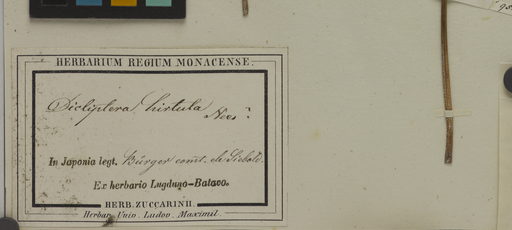 HERBARIUM REGIUM MONACENSE.
Dicliptera hirtula Nees?
In Japonia legt. Bürger comt. de Siebold.
Ex herbario Lugduno-Batavo.
HERB. ZUCCARINII.
Herbar. Univ. Ludov. Maximil.